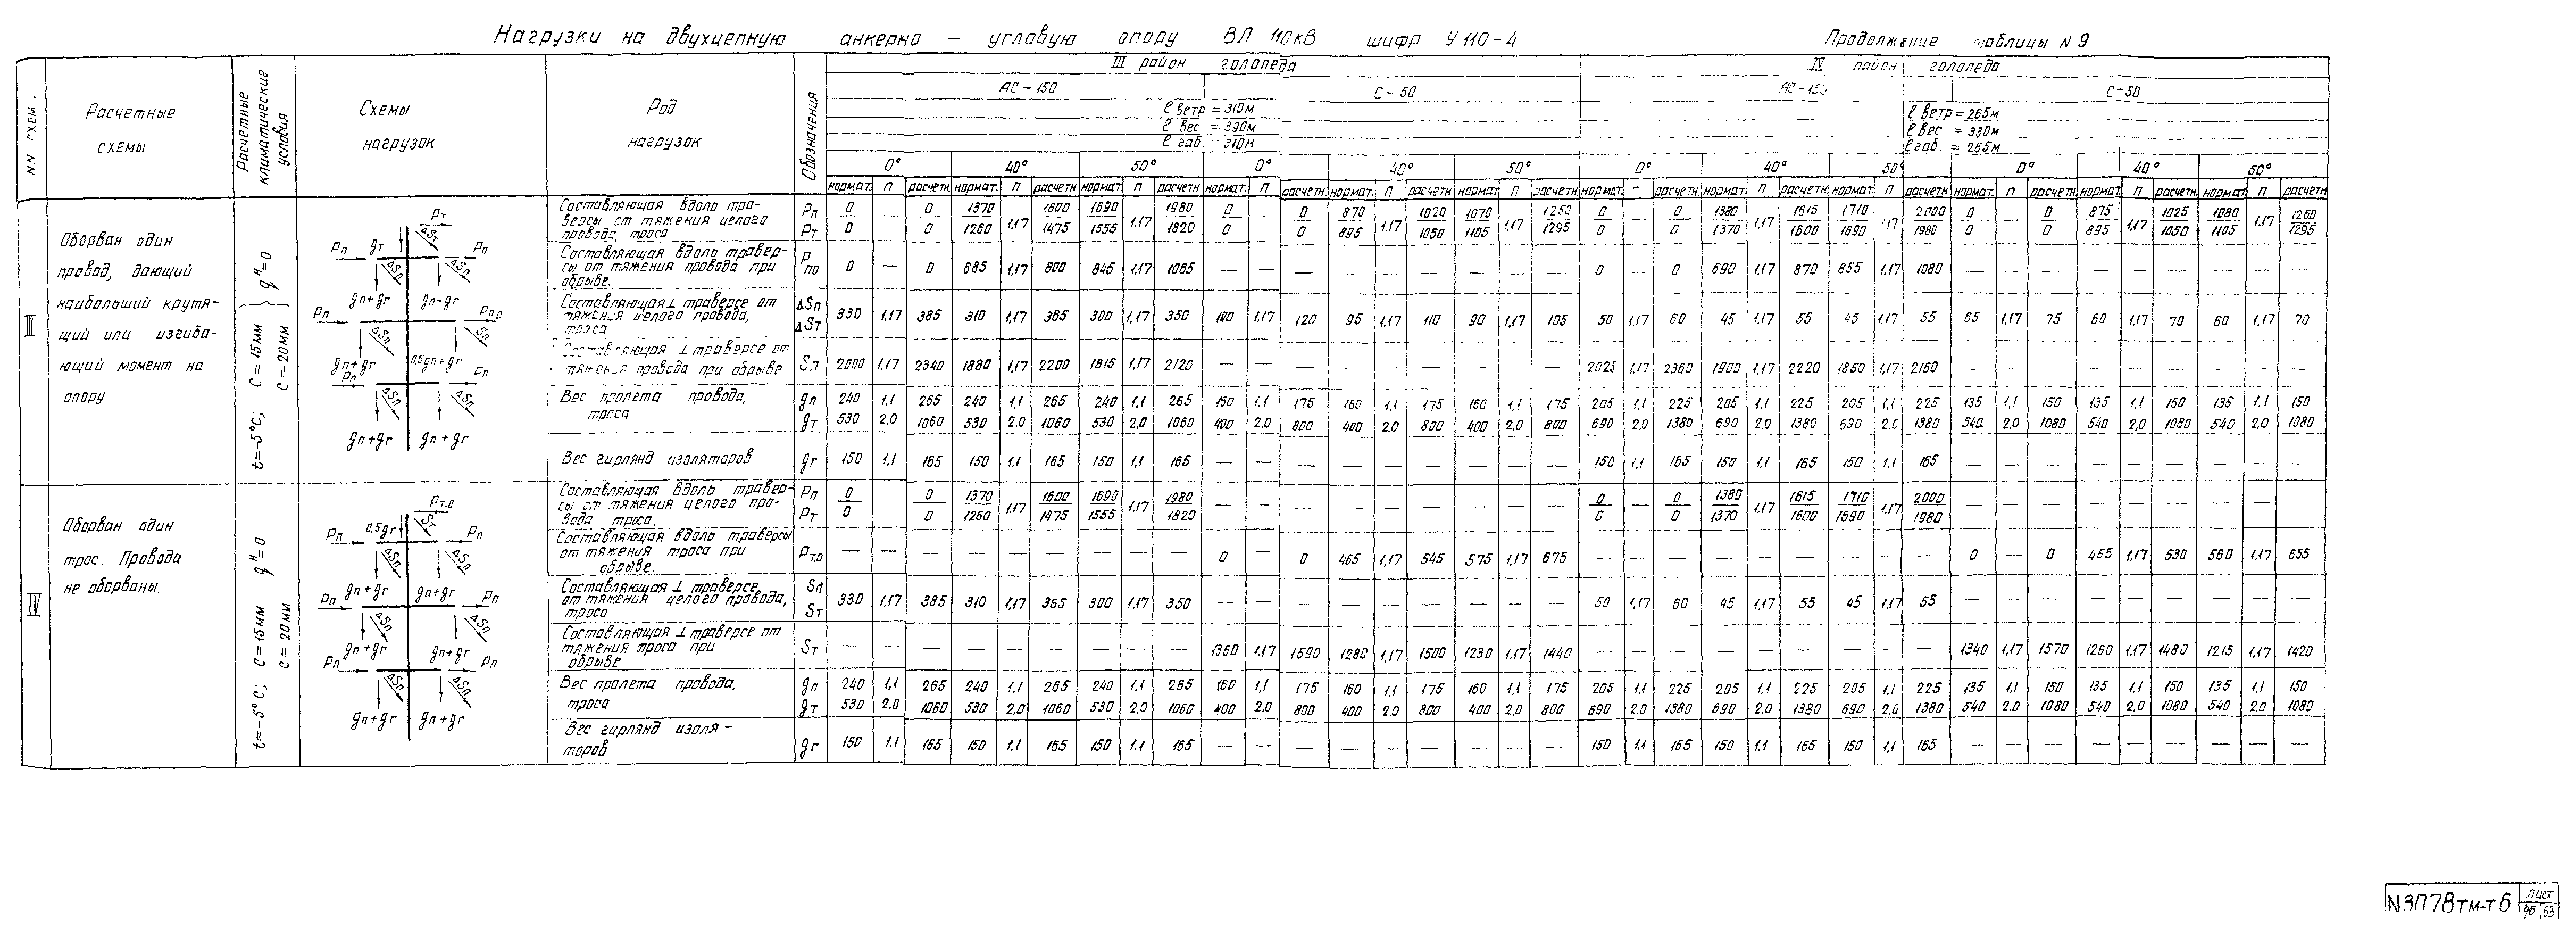 Нагрузки на двухцепную анкерно – угловую опору ВЛ 110кВ шифр У 110-4
Продолжение таблицы N 9
NN схем.
Расчетные схемы
Расчетные климатические условия
Схемы нагрузок
Род нагрузок
Обозначения
III район гололеда
IV район гололеда
АС-150 С-50 АС-150 С-50
ℓ ветр = 310м
ℓ вес = 390м
ℓ габ. = 310м
ℓ ветр = 265м
ℓ вес = 330м
ℓ габ. = 265м
0° 40° 50° 0° 40° 50° 0° 40° 50° 0° 40° 50°
нормат. п расчетн. нормат. п расчетн. нормат. п расчетн. нормат. п расчетн. нормат. п расчетн. нормат. п расчетн. нормат. расчетн. нормат. п расчетн. нормат. п расчетн. нормат. п расчетн. нормат. п расчетн. нормат. п расчетн.
III
Оборван один
провод, дающий
наибольший крутя-
щий или изгиба-
ющий момент на
опору
t=-5°С; С=15мм С=20мм } qᴴ=0
Pт
ΔSт
Pп gт Pп
ΔSп ΔSп
gп+gг gп+gг
Pп Pпо
ΔSп Sп
gп+gг 0,5gп+gг
Pп Pп
ΔSп ΔSп
gп+gг gп+gг
Составляющая вдоль тра-
версы от тяжения целого
провода троса
Pп 0 — 0 1370 1,17 1600 1690 1,17 1980 0 — 0 870 1,17 1020 1070 1,17 1250 0 — 0 1380 1,17 1615 1710 1,17 2000 0 — 0 875 1,17 1025 1080 1,17 1260
Pт 0 0 1260 1475 1555 1820 0 0 895 1050 1105 1295 0 0 1370 1600 1690 1980 0 0 895 1050 1105 1295
Составляющая вдоль травер-
сы от тяжения провода при
обрыве.
Pпо 0 — 0 685 1,17 800 845 1,17 1065 — — — — — — — — — 0 — 0 690 1,17 870 855 1,17 1080 — — — — — — — — —
Составляющая ⊥ траверсе от
тяжения целого провода,
троса
ΔSп
ΔSт
330 1,17 385 310 1,17 365 300 1,17 350 100 1,17 120 95 1,17 110 90 1,17 105 50 1,17 60 45 1,17 55 45 1,17 55 65 1,17 75 60 1,17 70 60 1,17 70
Составляющая ⊥ траверсе от
тяжения провода при обрыве
Sп 2000 1,17 2340 1880 1,17 2200 1815 1,17 2120 — — — — — — — — — 2025 1,17 2360 1900 1,17 2220 1850 1,17 2160 — — — — — — — — —
Вес пролета провода,
троса
gп 240 1,1 265 240 1,1 265 240 1,1 265 150 1,1 175 160 1,1 175 160 1,1 175 205 1,1 225 205 1,1 225 205 1,1 225 135 1,1 150 135 1,1 150 135 1,1 150
gт 530 2,0 1060 530 2,0 1060 530 2,0 1060 400 2.0 800 400 2.0 800 400 2.0 800 690 2.0 1380 690 2.0 1380 690 2.0 1380 540 2,0 1080 540 2.0 1080 540 2.0 1080
Вес гирлянд изоляторов
gг 150 1,1 165 150 1,1 165 150 1,1 165 — — — — — — — — — 150 1,1 165 150 1,1 165 150 1,1 165 — — — — — — — — —
IV
Оборван один
трос. Провода
не оборваны.
t=-5°С; С=15мм С=20мм qᴴ=0
Pт.о
Sт
Pп 0,5gт Pп
ΔSп ΔSп
gп+gг gп+gг
Pп Pп
ΔSп ΔSп
gп+gг gп+gг
Pп Pп
ΔSп ΔSп
gп+gг gп+gг
Составляющая вдоль травер-
сы от тяжения целого про-
вода троса.
Pп 0 — 0 1370 1,17 1600 1690 1,17 1980 — — — — — — — — — 0 — 0 1380 1,17 1615 1710 1,17 2000 — — — — — — — — —
Pт 0 0 1260 1475 1555 1820 0 0 1370 1600 1690 1980
Составляющая вдоль траверсы
от тяжения троса при
обрыве.
Pт.о — — — — — — — — — 0 — 0 465 1,17 545 575 1,17 675 — — — — — — — — — 0 — 0 455 1,17 530 560 1,17 655
Составляющая ⊥ траверсе
от тяжения целого провода,
троса
Sп
Sт
330 1,17 385 310 1,17 365 300 1,17 350 — — — — — — — — — 50 1,17 60 45 1,17 55 45 1,17 55 — — — — — — — — —
Составляющая ⊥ траверсе от
тяжения троса при
обрыве
Sт — — — — — — — — — 1360 1,17 1590 1280 1,17 1500 1230 1,17 1440 — — — — — — — — — 1340 1,17 1570 1260 1,17 1480 1215 1,17 1420
Вес пролета провода,
троса
gп 240 1,1 265 240 1,1 265 240 1,1 265 160 1,1 175 160 1,1 175 160 1,1 175 205 1,1 225 205 1,1 225 205 1,1 225 135 1,1 150 135 1,1 150 135 1,1 150
gт 530 2.0 1060 530 2,0 1060 530 2.0 1060 400 2.0 800 400 2.0 800 400 2.0 800 690 2.0 1380 690 2.0 1380 690 2.0 1380 540 2.0 1080 540 2.0 1080 540 2.0 1080
Вес гирлянд изоля-
торов
gг 150 1.1 165 150 1,1 165 150 1.1 165 — — — — — — — — — 150 1.1 165 150 1,1 165 150 1,1 165 — — — — — — — — —
N3078тм-т6
Лист
46 63